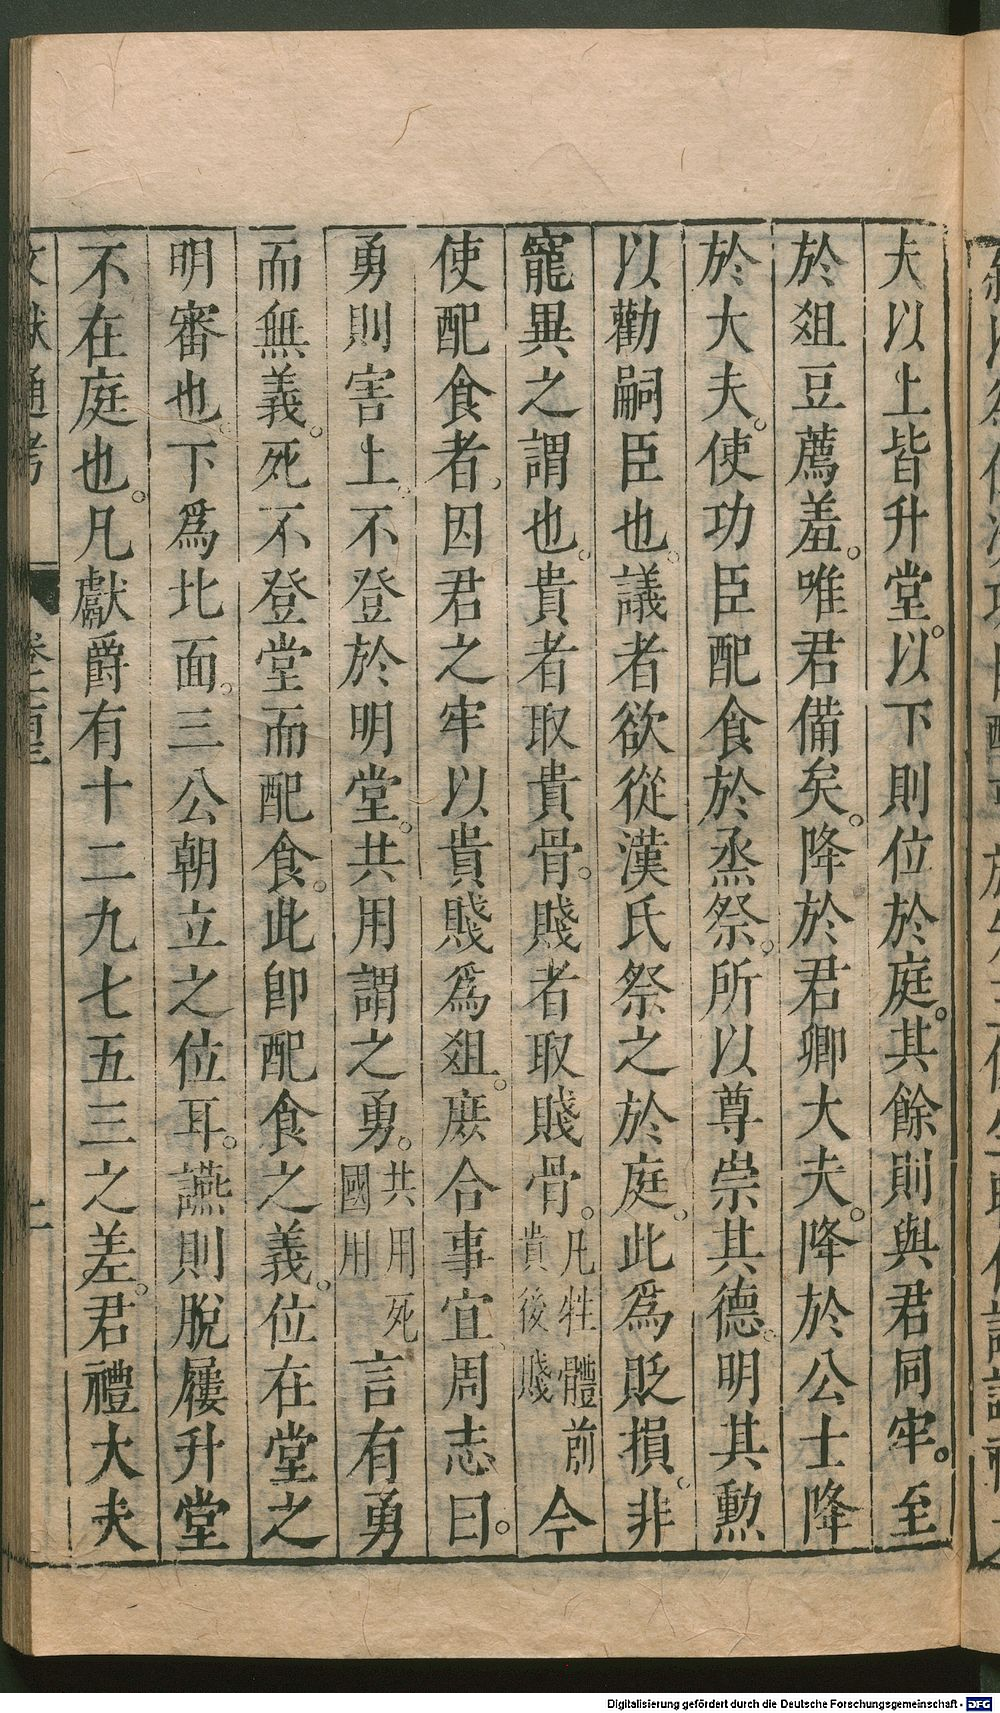 夫以上皆升堂。以下則位於庭。其餘則與君同牢。至
於爼豆薦羞。唯君備矣。降於君卿大夫。降於公士降
於大夫。使功臣配食於烝祭。所以尊崇其德。明其勲
以勸嗣臣也。議者欲從漢氏祭之於庭。此爲貶損。非
寵異之謂也。貴者取貴骨。賤者取賤骨。凡牲體前貴後賤今
使配食者。因君之牢以貴賤爲爼。庶合事宜周志曰。
勇則害上。不登於明堂。共用謂之勇。共用死國用言有勇
而無義。死不登堂而配食。此卽配食之義。位在堂之
明審也。下爲北面。三公朝立之位耳。讌則脫屨升堂
不在庭也。凡獻爵有十二九七五三之差。君禮大夫
文獻通考
Digitalisierung gefördert durch die Deutsche Forschungsgemeinschaft - DFG